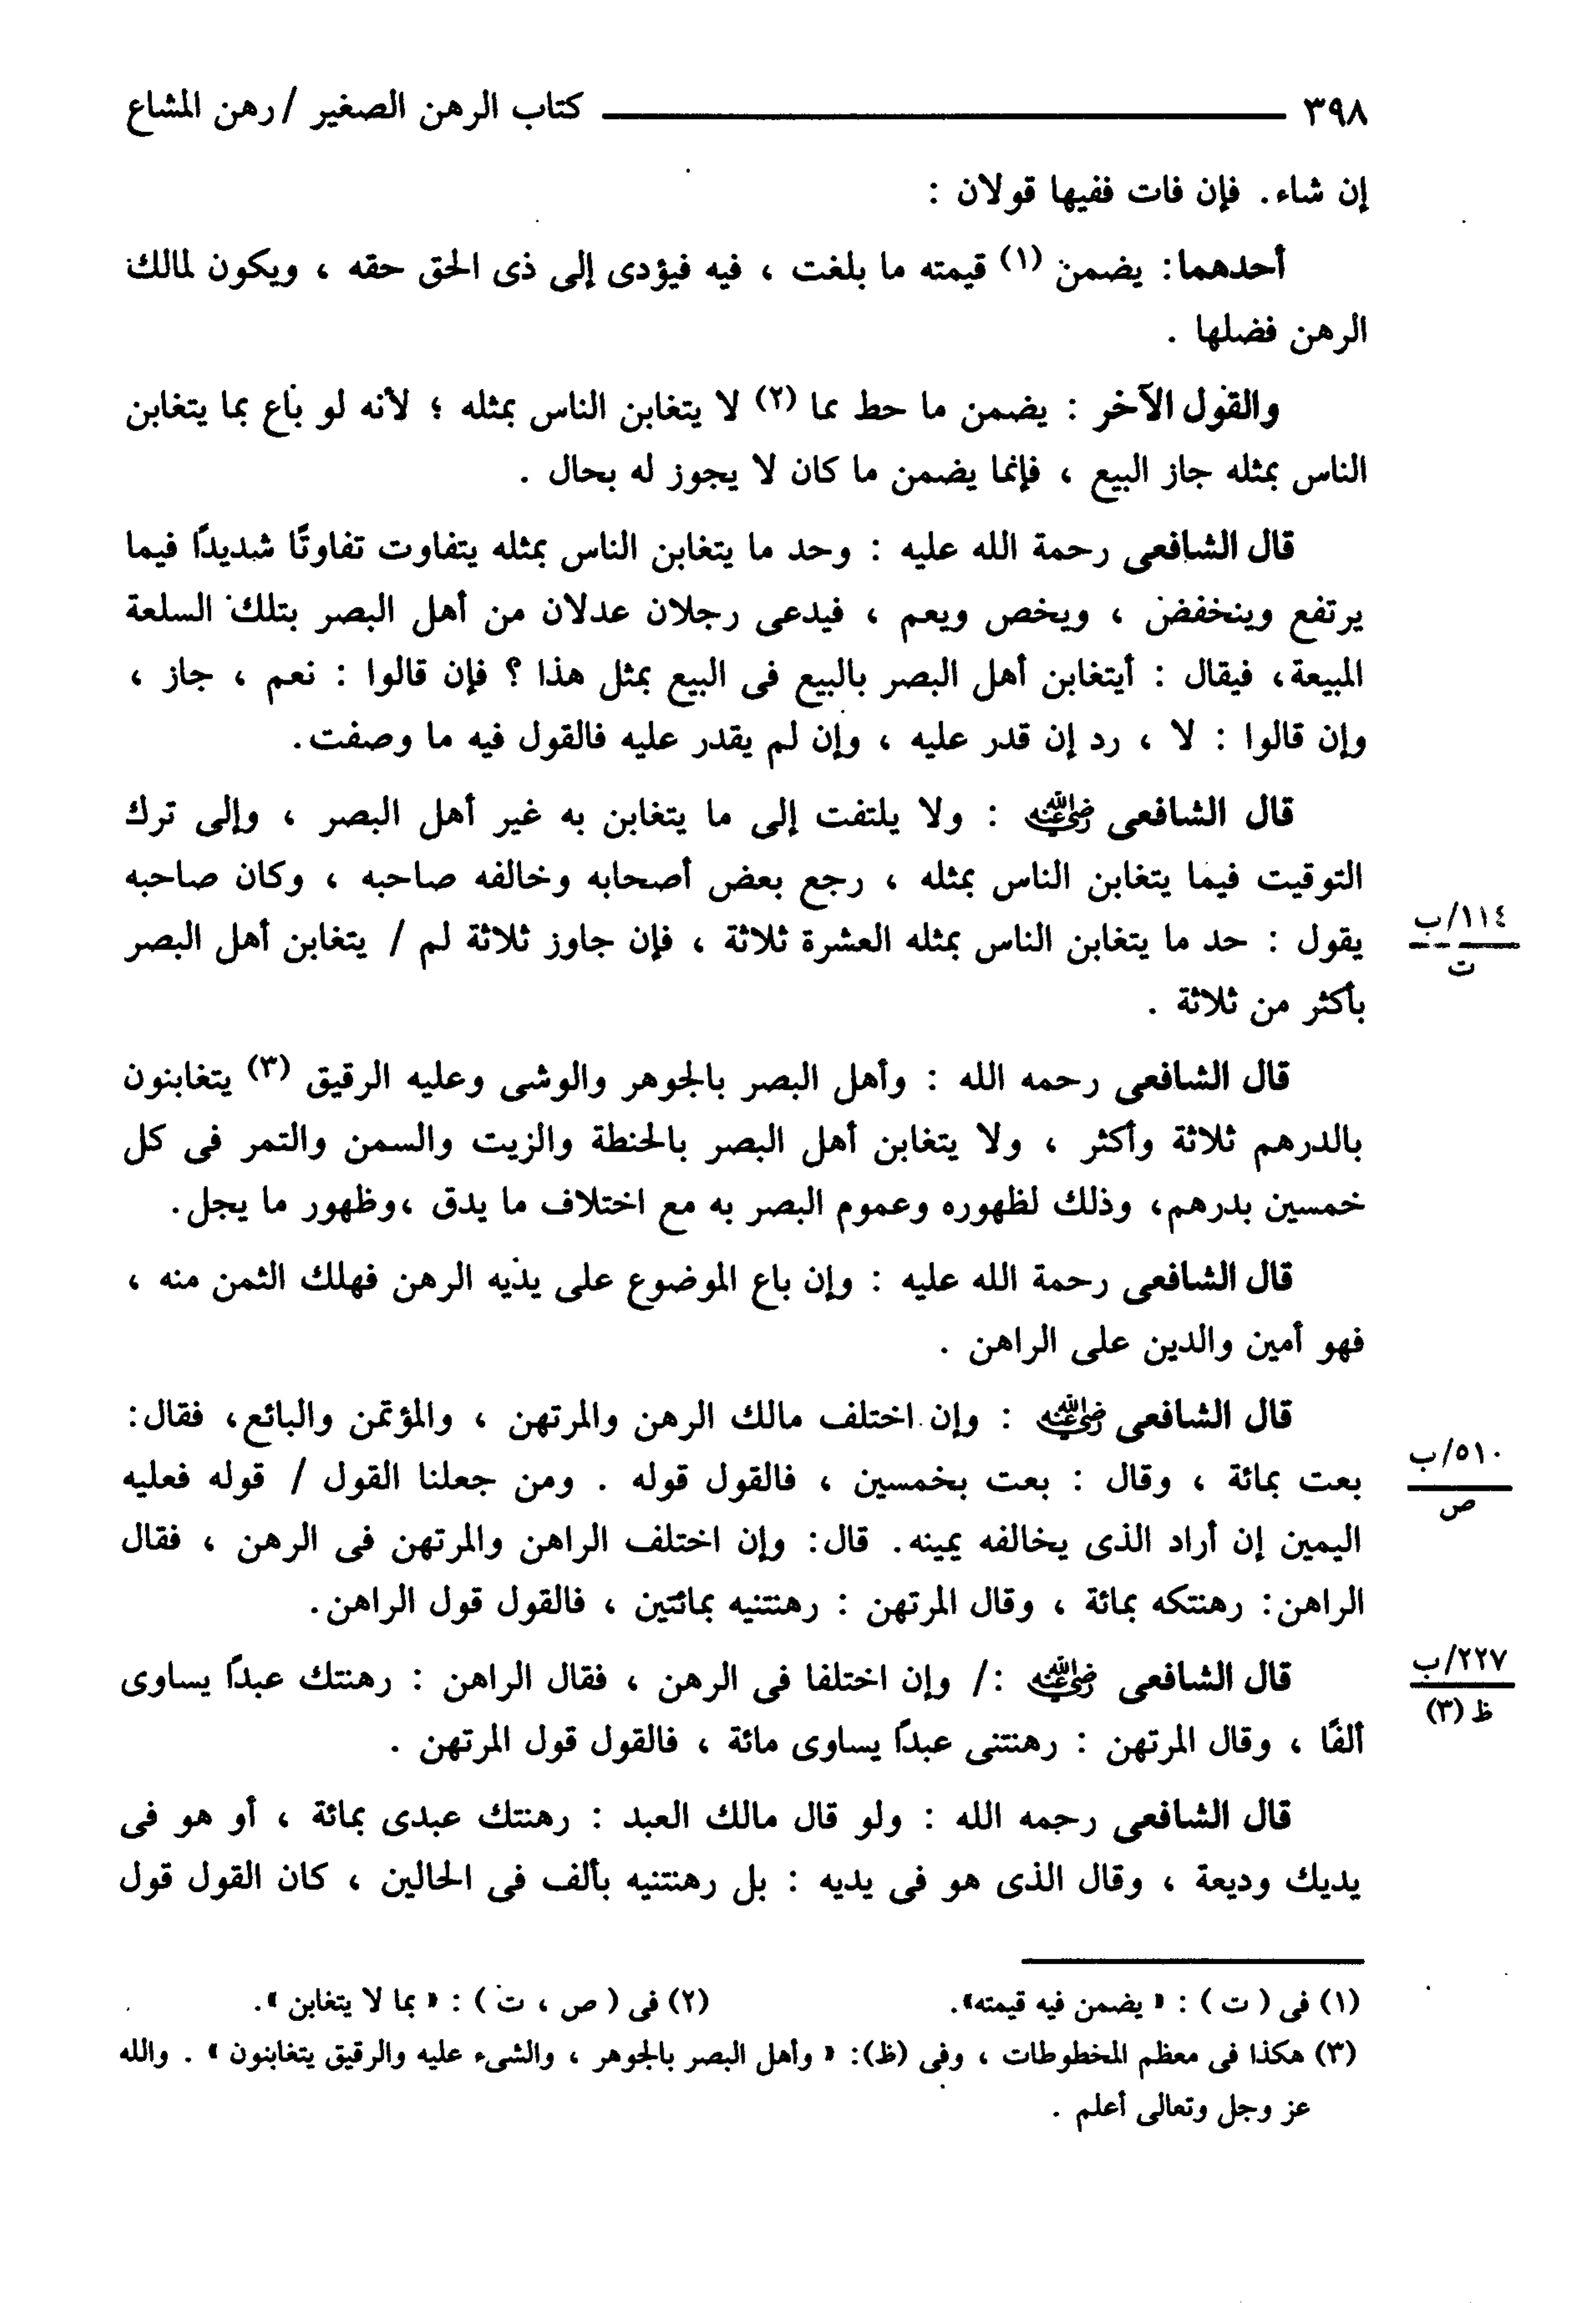 ٣٩٨ كتاب الرهن الصغير / رهن المشاع
إن شاء. فإن فات ففيها قولان :
أحدهما: يضمن (١) قيمته ما بلغت ، فيه فيؤدى إلى ذى الحق حقه ، ويكون لمالك
الرهن فضلها .
والقول الآخر : يضمن ما حط مما (٢) لا يتغابن الناس بمثله ؛ لأنه لو باع بما يتغابن
الناس بمثله جاز البيع ، فإنما يضمن ما كان لا يجوز له بحال .
قال الشافعى رحمة الله عليه : وحد ما يتغابن الناس بمثله يتفاوت تفاوتًا شديدًا فيما
يرتفع وينخفض ، ويخص ويعم ، فيدعى رجلان عدلان من أهل البصر بتلك السلعة
المبيعة، فيقال : أيتغابن أهل البصر بالبيع فى البيع بمثل هذا ؟ فإن قالوا : نعم ، جاز ،
وإن قالوا : لا ، رد إن قدر عليه ، وإن لم يقدر عليه فالقول فيه ما وصفت.
قال الشافعى رضي الله عنه : ولا يلتفت إلى ما يتغابن به غير أهل البصر ، وإلى ترك
التوقيت فيما يتغابن الناس بمثله ، رجع بعض أصحابه وخالفه صاحبه ، وكان صاحبه
يقول : حد ما يتغابن الناس بمثله العشرة ثلاثة ، فإن جاوز ثلاثة لم / يتغابن أهل البصر
١١٤/ب
ت
بأكثر من ثلاثة .
قال الشافعى رحمه الله : وأهل البصر بالجوهر والوشى وعليه الرقيق (٣) يتغابنون
بالدرهم ثلاثة وأكثر ، ولا يتغابن أهل البصر بالحنطة والزيت والسمن والتمر فى كل
خمسين بدرهم، وذلك لظهوره وعموم البصر به مع اختلاف ما يدق ،وظهور ما يجل.
قال الشافعى رحمة الله عليه : وإن باع الموضوع على يديه الرهن فهلك الثمن منه ،
فهو أمين والدين على الراهن .
قال الشافعى رضي الله عنه : وإن اختلف مالك الرهن والمرتهن ، والمؤتمن والبائع، فقال:
بعت بمائة ، وقال : بعت بخمسين ، فالقول قوله . ومن جعلنا القول / قوله فعليه
٥١٠/ب
ص
اليمين إن أراد الذى يخالفه يمينه. قال: وإن اختلف الراهن والمرتهن فى الرهن ، فقال
الراهن: رهنتكه بمائة ، وقال المرتهن : رهنتنيه بمائتين ، فالقول قول الراهن.
قال الشافعى رضي الله عنه :/ وإن اختلفا فى الرهن ، فقال الراهن : رهنتك عبدًا يساوى
٢٢٧/ب
ظ (٣)
ألفًا ، وقال المرتهن : رهنتنى عبدًا يساوى مائة ، فالقول قول المرتهن .
قال الشافعى رحمه الله : ولو قال مالك العبد : رهنتك عبدى بمائة ، أو هو فى
يديك وديعة ، وقال الذى هو فى يديه : بل رهنتنيه بألف فى الحالين ، كان القول قول
(١) فى ( ت ) : « يضمن فيه قيمته». (٢) فى ( ص ، ت ) : « بما لا يتغابن ».
(٣) هكذا فى معظم المخطوطات ، وفى (ظ): « وأهل البصر بالجوهر ، والشىء عليه والرقيق يتغابنون » . والله
عز وجل وتعالى أعلم .